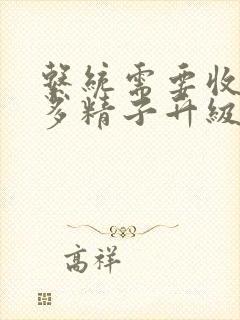 繫統需要收
多精子升級
高祥